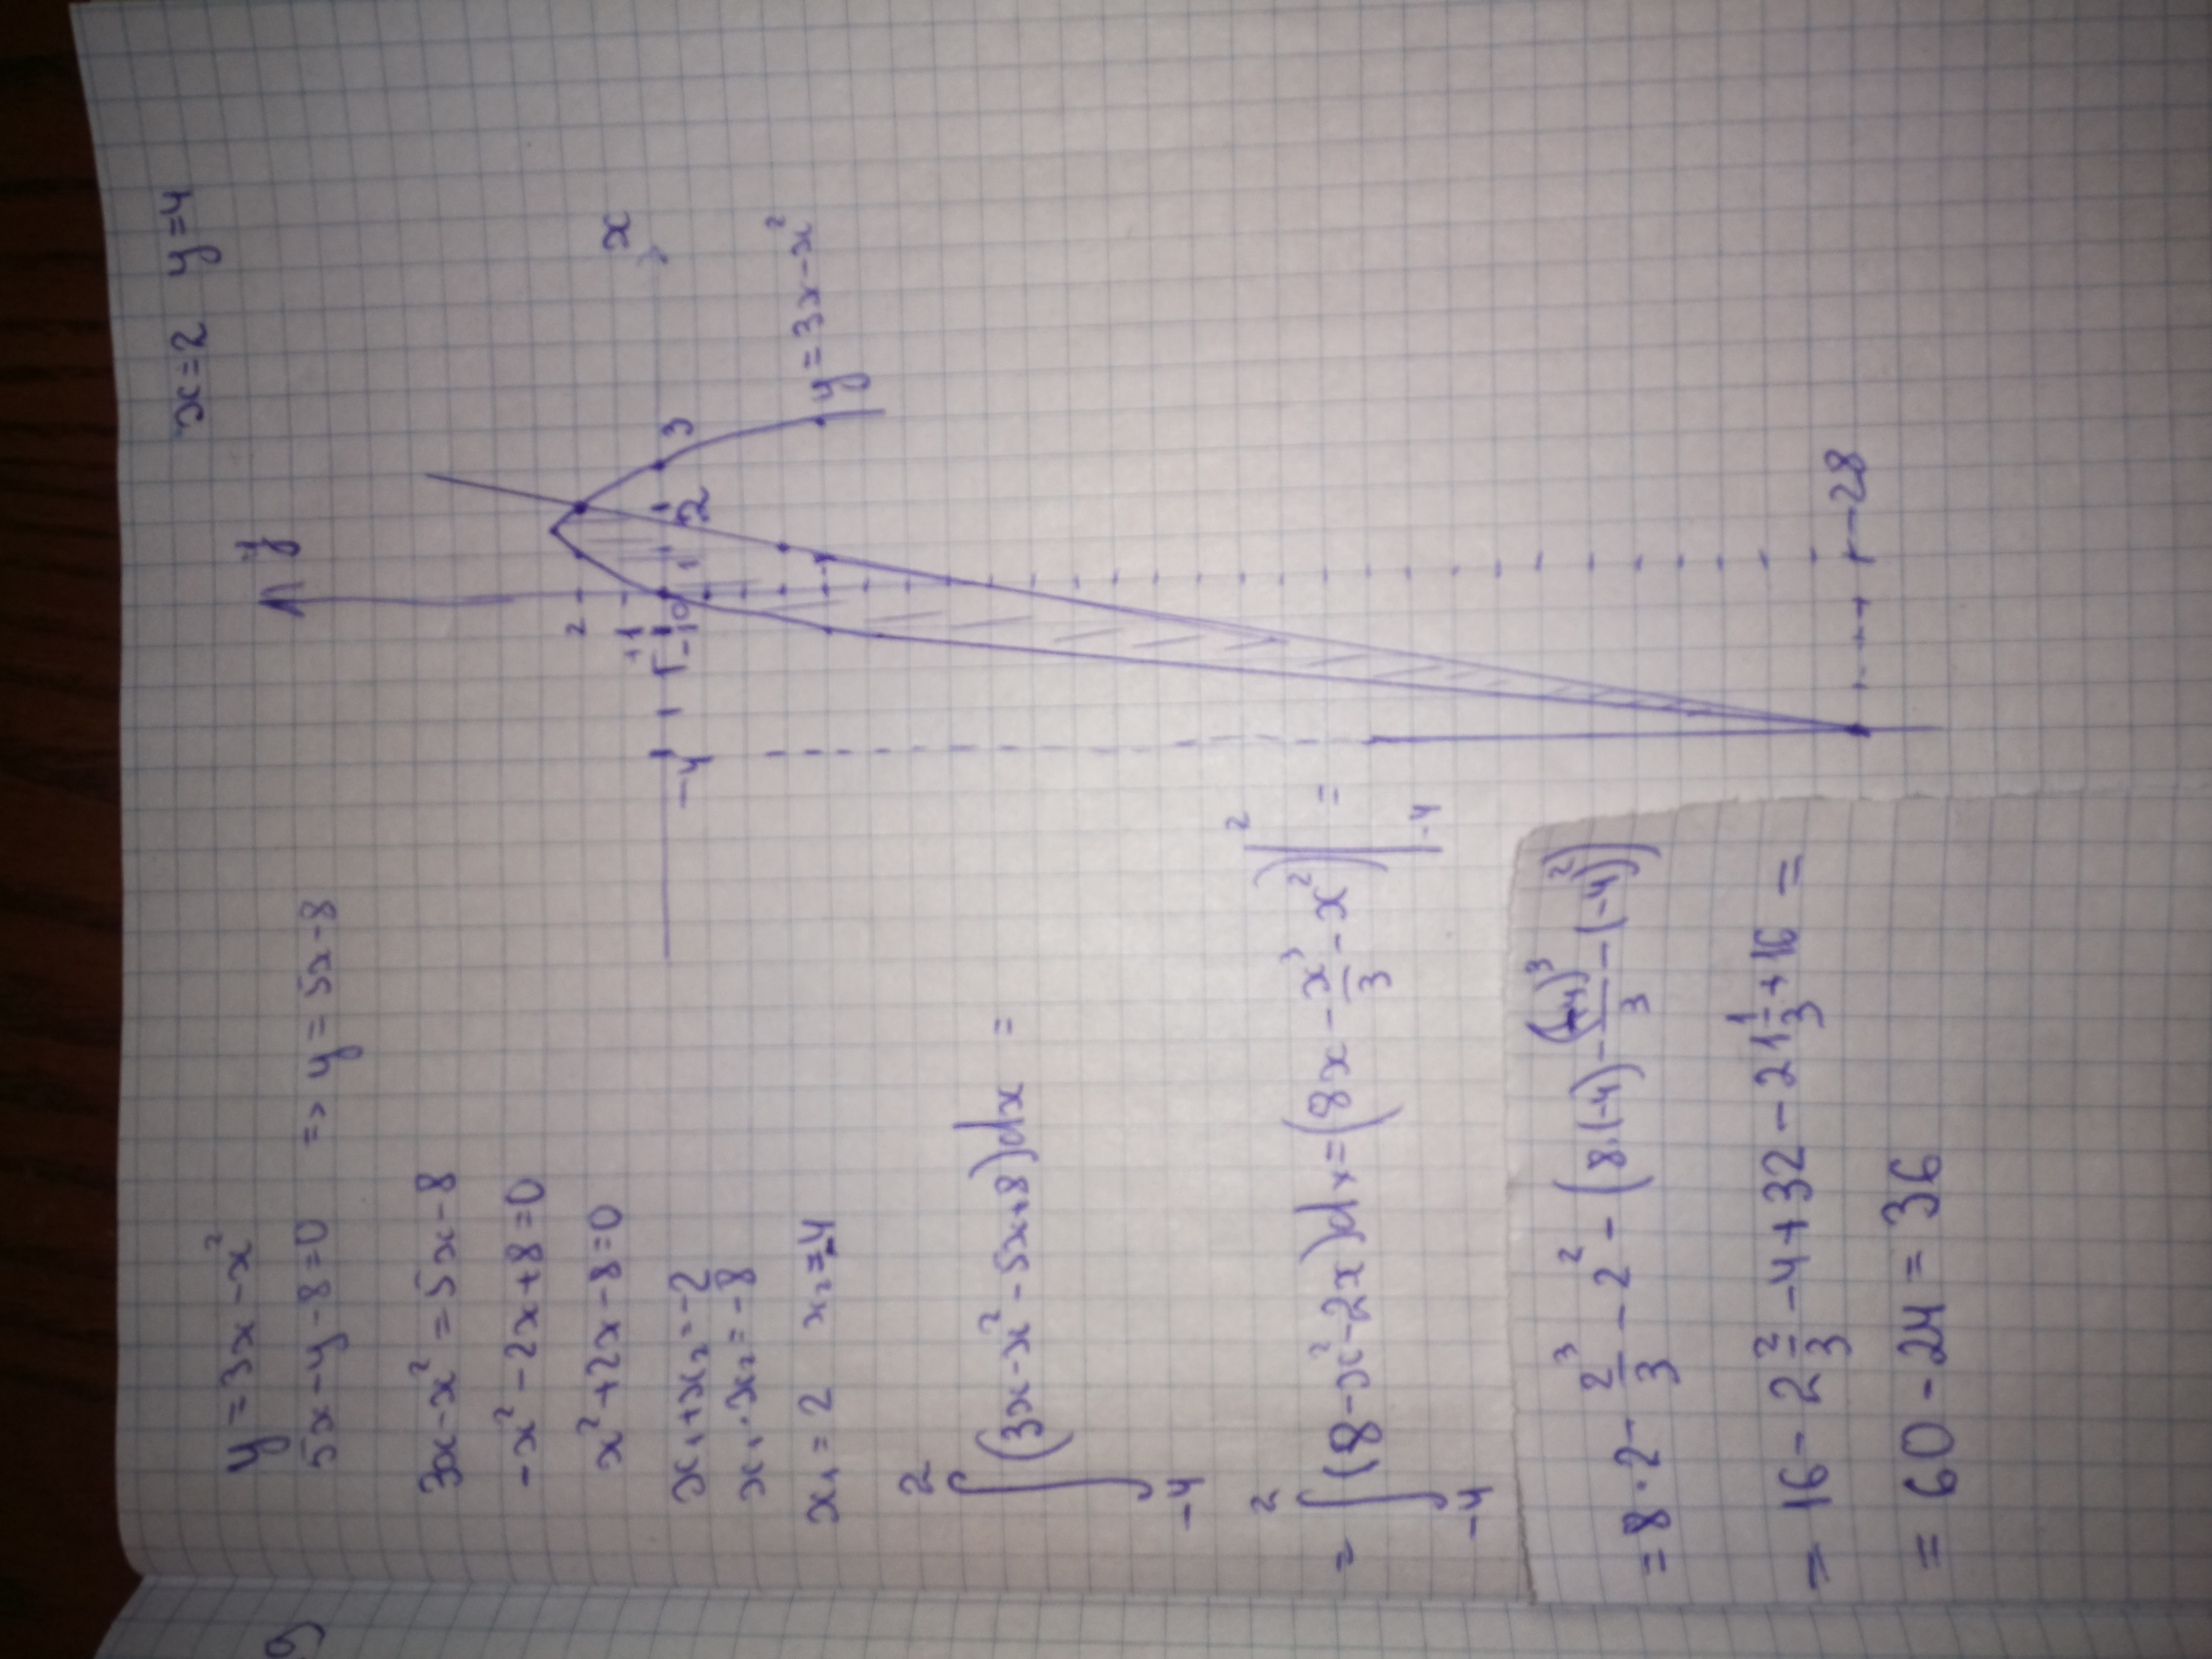 б)
y = 3x - x²
5x - y - 8 = 0 => y = 5x - 8
3x - x² = 5x - 8
-x² - 2x + 8 = 0
x² + 2x - 8 = 0
x₁ + x₂ = -2
x₁ · x₂ = -8
x₁ = 2 x₂ = -4
∫₋₄² (3x - x² - 5x + 8)dx =
= ∫₋₄² (8 - x² - 2x)dx = (8x - x³/3 - x²)|₋₄² =
= 8·2 - 2³/3 - 2² - (8·(-4) - (-4)³/3 - (-4)²)
= 16 - 2 2/3 - 4 + 32 - 21 1/3 + 16 =
= 60 - 24 = 36
x = 2 y = 4
y
x
2
1
-4
-1
0
1
2
3
y = 3x - x²
-28